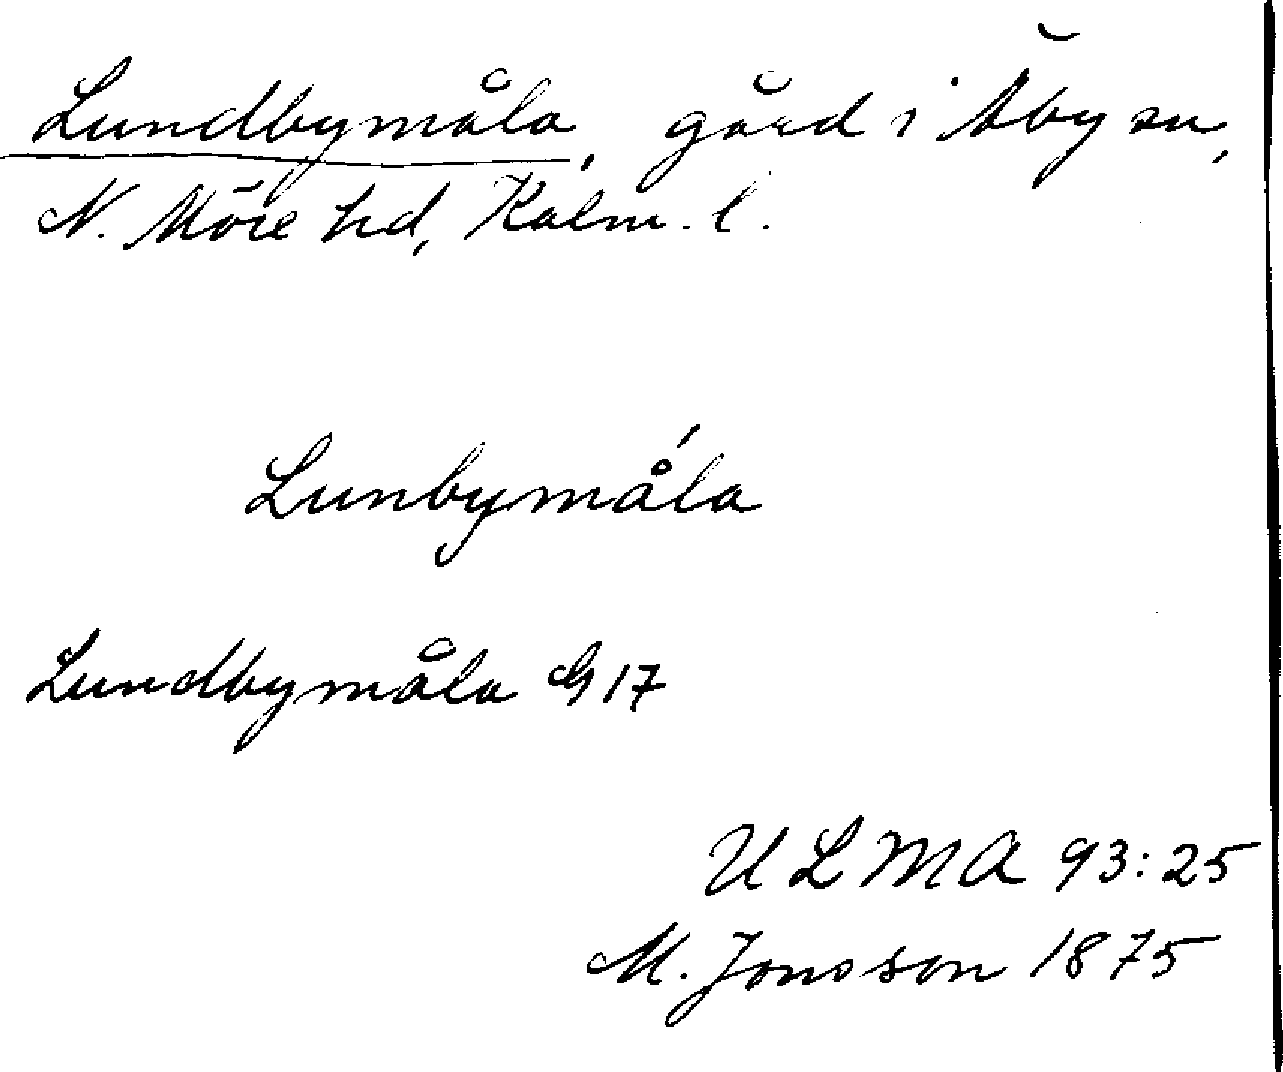 Lundbymåla, gård i Åby sn,
N. Möre hd, Kalm. l.
Lunbymǻla
Lundbymåla G 17
ULMA 93:25
M. Jonsson 1875